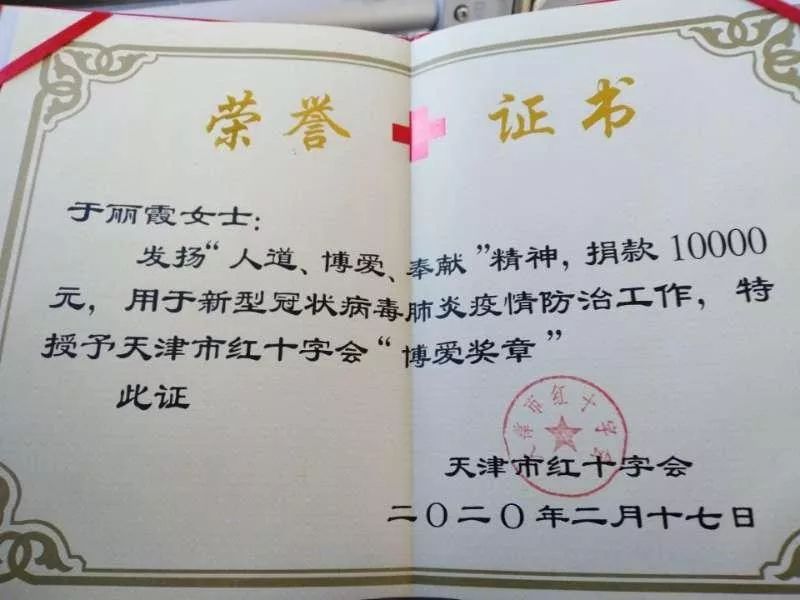 荣誉证书
于丽霞女士：
发扬“人道、博爱、奉献”精神，捐款10000
元，用于新型冠状病毒肺炎疫情防治工作，特
授予天津市红十字会“博爱奖章”
此证
天津市红十字会
天津市红十字会
二〇二〇年二月十七日